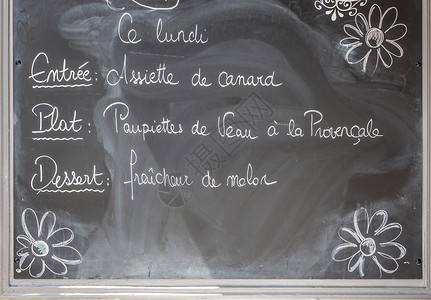 Ce lundi
Entrée : Assiette de canard
Plat : Paupiettes de Veau à la Provençale
Dessert : fraîcheur de melon